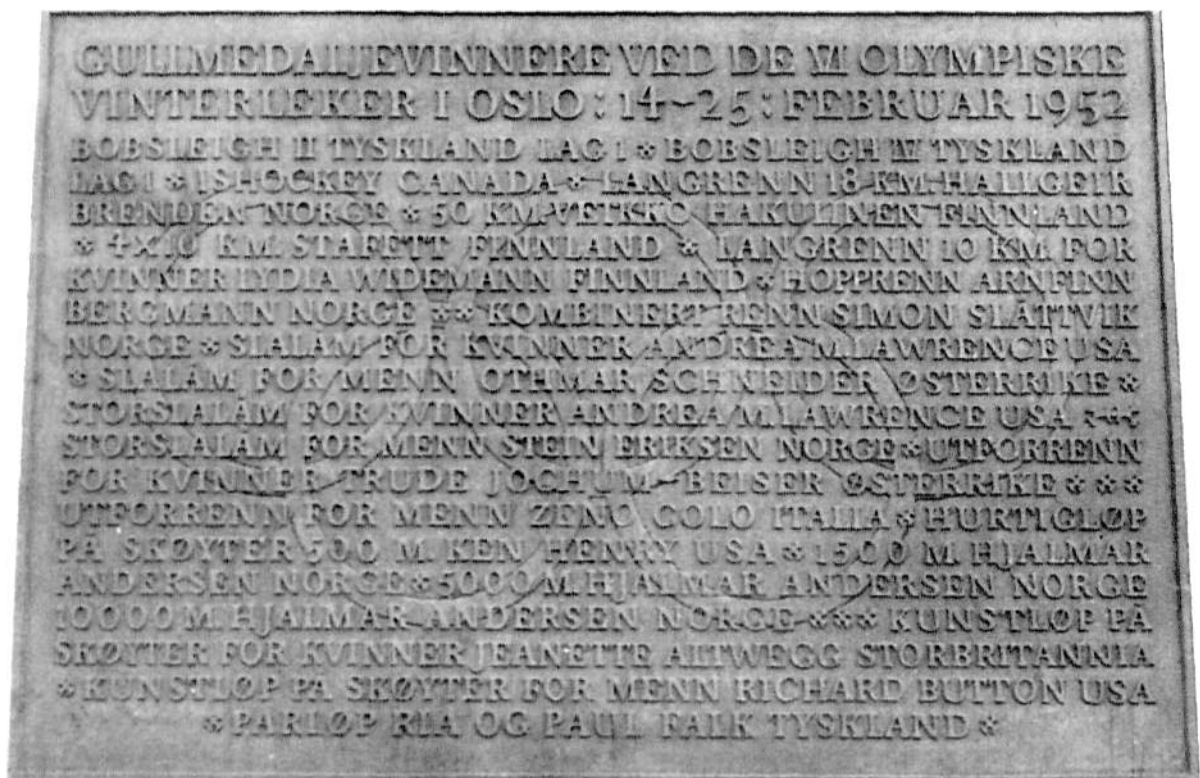 GULLMEDALJEVINNERE VED DE VI OLYMPISKE
VINTERLEKER I OSLO: 14-25: FEBRUAR 1952
BOBSLEIGH II TYSKLAND LAG 1 * BOBSLEIGH IV TYSKLAND
LAG 1 * ISHOCKEY CANADA * LANGRENN 18 KM. HALLGEIR
BRENDEN NORGE * 50 KM. VEIKKO HAKULINEN FINNLAND
* 4X10 KM. STAFETT FINNLAND * LANGRENN 10 KM. FOR
KVINNER LYDIA WIDEMANN FINNLAND * HOPPRENN ARNFINN
BERGMANN NORGE ** KOMBINERT RENN SIMON SLÅTTVIK
NORGE * SLALÅM FOR KVINNER ANDREA M. LAWRENCE USA
* SLALÅM FOR MENN OTHMAR SCHNEIDER ØSTERRIKE *
STORSLALÅM FOR KVINNER ANDREA M. LAWRENCE USA ***
STORSLALÅM FOR MENN STEIN ERIKSEN NORGE * UTFORRENN
FOR KVINNER TRUDE JOCHUM-BEISER ØSTERRIKE ***
UTFORRENN FOR MENN ZENO COLO ITALIA * HURTIGLØP
PÅ SKØYTER 500 M. KEN HENRY USA * 1500 M. HJALMAR
ANDERSEN NORGE * 5000 M. HJALMAR ANDERSEN NORGE
10000 M. HJALMAR ANDERSEN NORGE *** KUNSTLØP PÅ
SKØYTER FOR KVINNER JEANETTE ALTWEGG STORBRITANNIA
* KUNSTLØP PÅ SKØYTER FOR MENN RICHARD BUTTON USA
* PARLØP RIA OG PAUL FALK TYSKLAND *